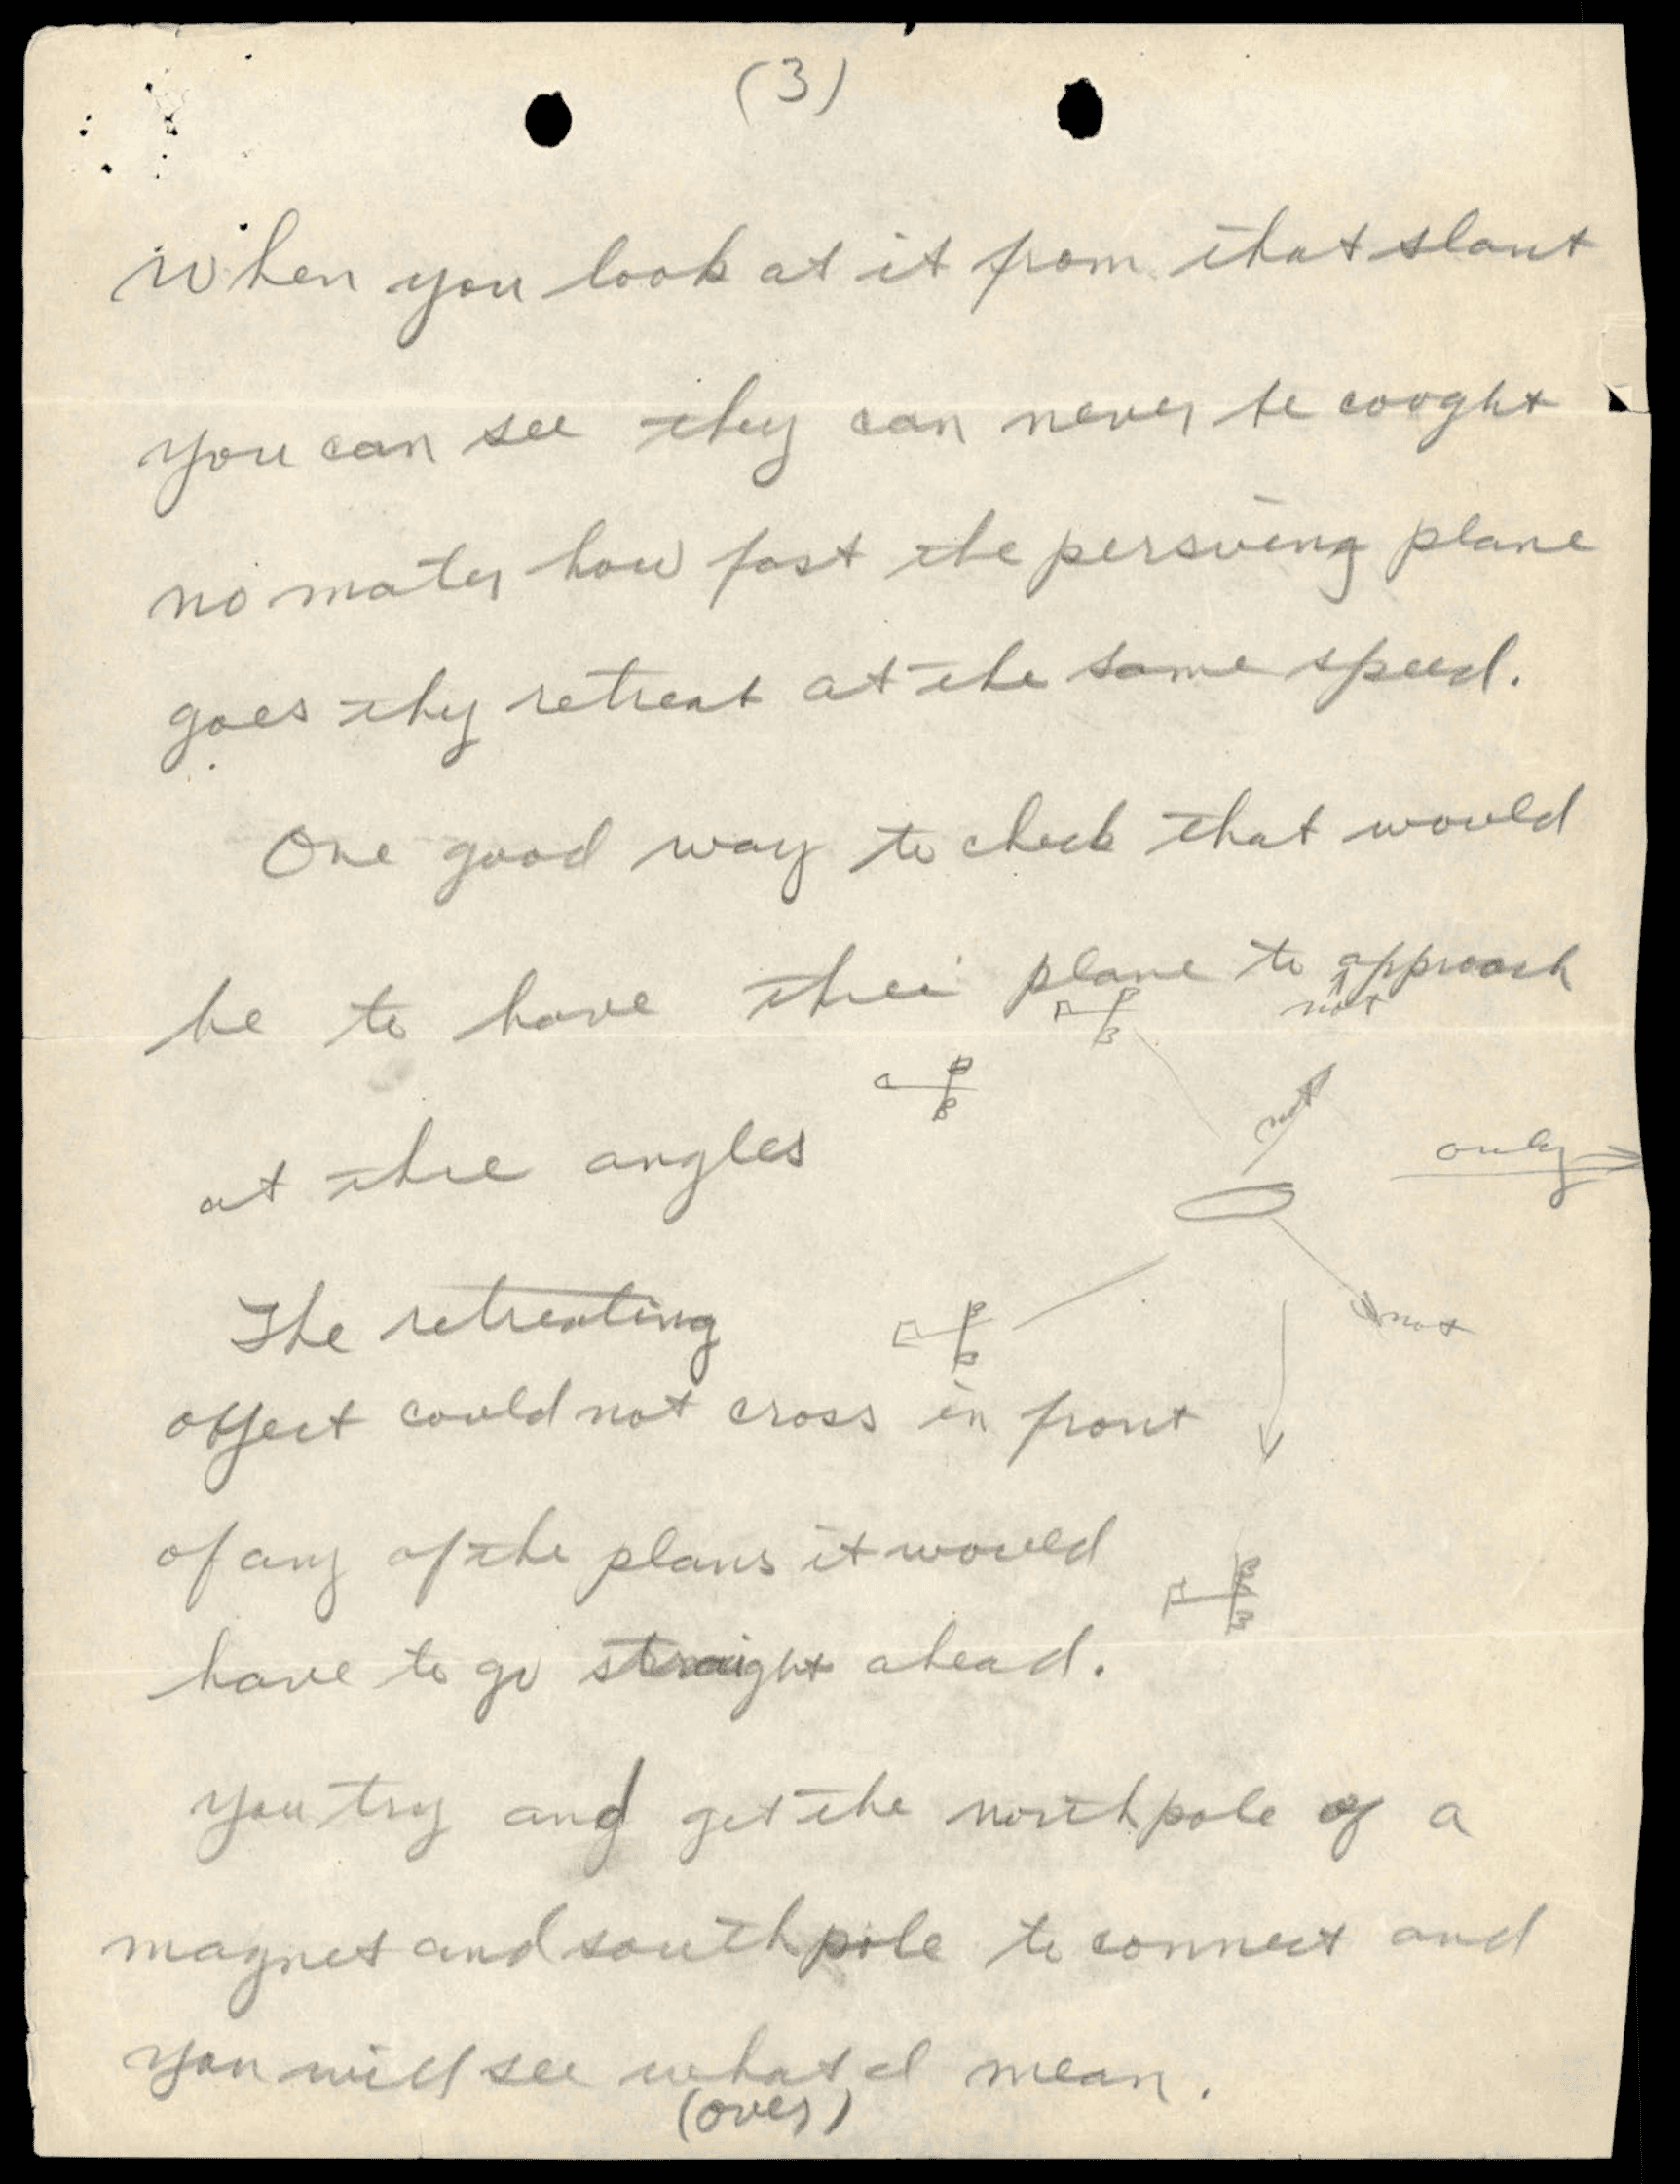 (3)
When you look at it from that slant
you can see they can never be cooght
no mater how fast the persuing plane
goes they retreat at the same speed.
One good way to check that would
be to have three plane to approach
not
at thre angles
not
only
The retreating
not
object could not cross in front
of any of the plans it would
have to go straight ahead.
You try and get the north pole of a
magnet and south pole to connect and
you will see what I mean.
(over)